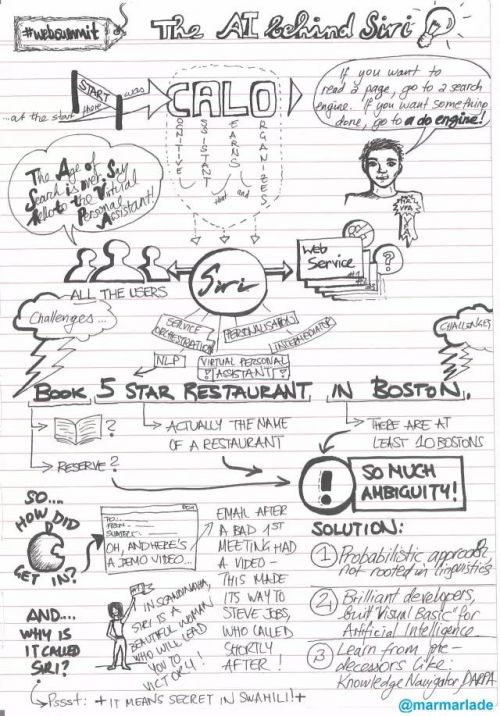 #websummit
The AI behind Siri
...at the start
START
there
was
CALO
COGNITIVE
ASSISTANT
that
LEARNS
and
ORGANIZES
If you want to
read a page, go to a search
engine. If you want something
done, go to a do engine!
The Age of
Search is over. Say
Hello to the Virtual
Personal
Assistant!
YAY
ALL THE USERS
Siri
Web
Service
?
SERVICE
ORCHESTRATION
PERSONALISATION
NLP
VIRTUAL PERSONAL
? ASSISTANT ?
Challenges...
CHALLENGES
BOOK 5 STAR RESTAURANT IN BOSTON.
?
RESERVE?
ACTUALLY THE NAME
OF A RESTAURANT
THERE ARE AT
LEAST 10 BOSTONS
!
SO MUCH
AMBIGUITY!
SO....
HOW DID
GET IN?
TO:
FROM:
SUBJECT:
OH, AND HERE'S
A DEMO VIDEO...
EMAIL AFTER
A BAD 1st
MEETING HAD
A VIDEO -
THIS MADE
ITS WAY TO
STEVE JOBS,
WHO CALLED
SHORTLY
AFTER!
AND....
WHY IS
IT CALLED
SIRI?
IN SCANDINAVIA,
SIRI IS A
BEAUTIFUL WOMAN
WHO WILL LEAD
YOU TO
VICTORY!
Pssst: + IT MEANS SECRET IN SWAHILI! +
SOLUTION:
1 Probabilistic approach
not rooted in linguistics
2 Brilliant developers,
built "Visual Basic" for
Artificial Intelligence
3 Learn from pre-
decessors like:
Knowledge Navigator, DARPA
@marmarlade